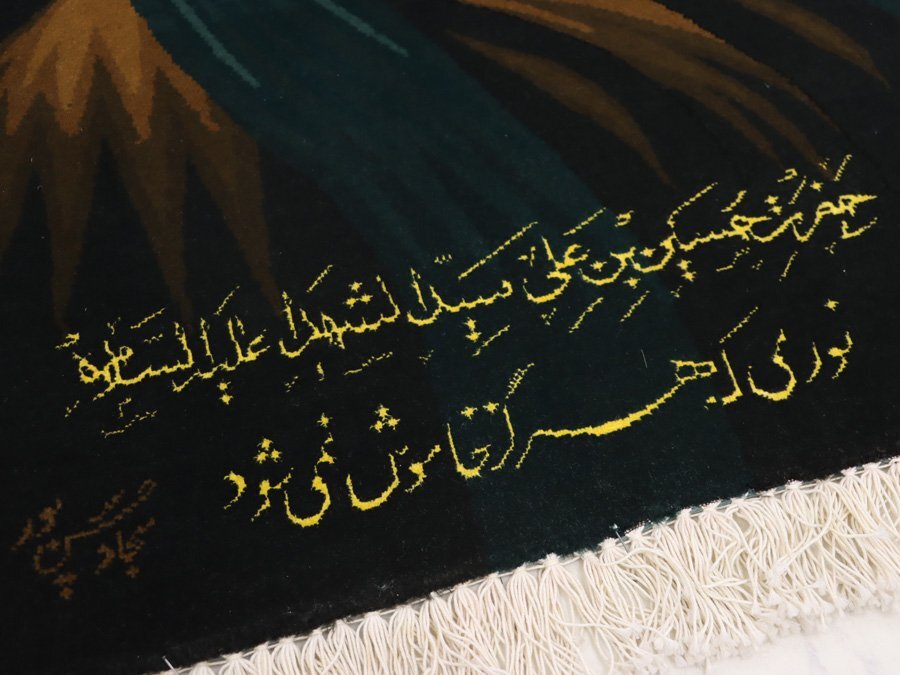 حضرت حسین بن علی سید الشهداء علیه السلام
نوری که هرگز خاموش نمی شود
سجاد